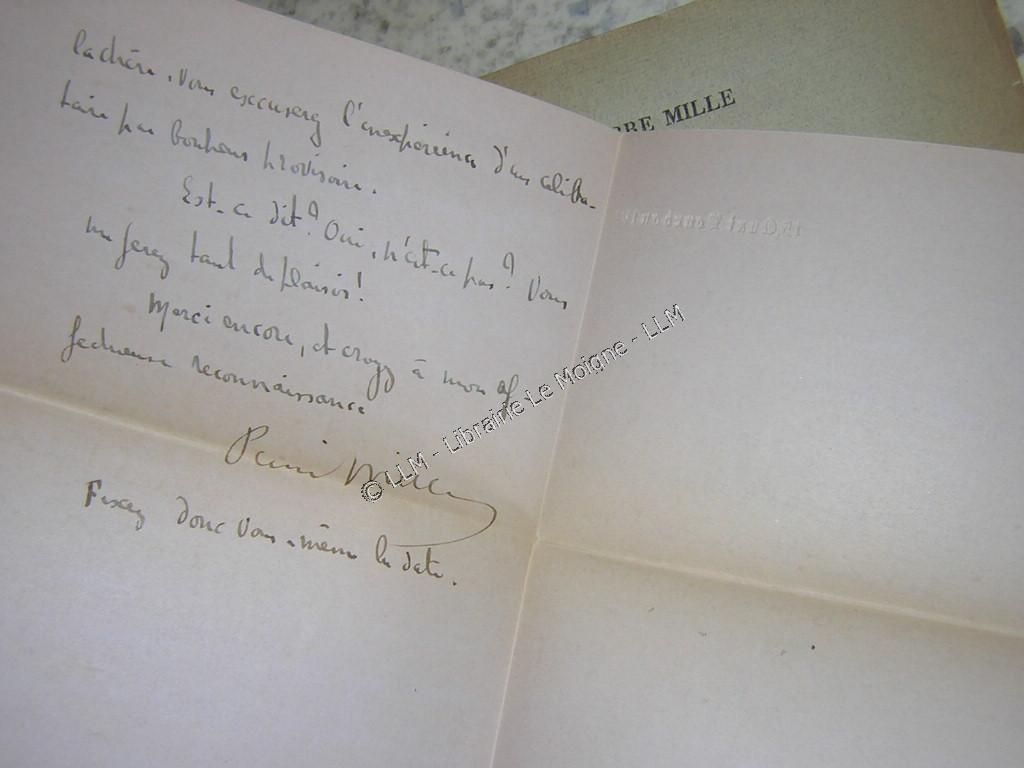 la chère, vous excuserez l'inexpérience d'un céliba-
taire par bonheur provisoire.
Est-ce dit? Oui, n'est-ce pas? Vous
me ferez tant de plaisir!
Merci encore, et croyez à mon af
fectueuse reconnaissance
Pierre Mille
Fixez donc vous-même la date.
RRE MILLE
15, Quai Bourbon
© LLM - Librairie Le Moigne - LLM